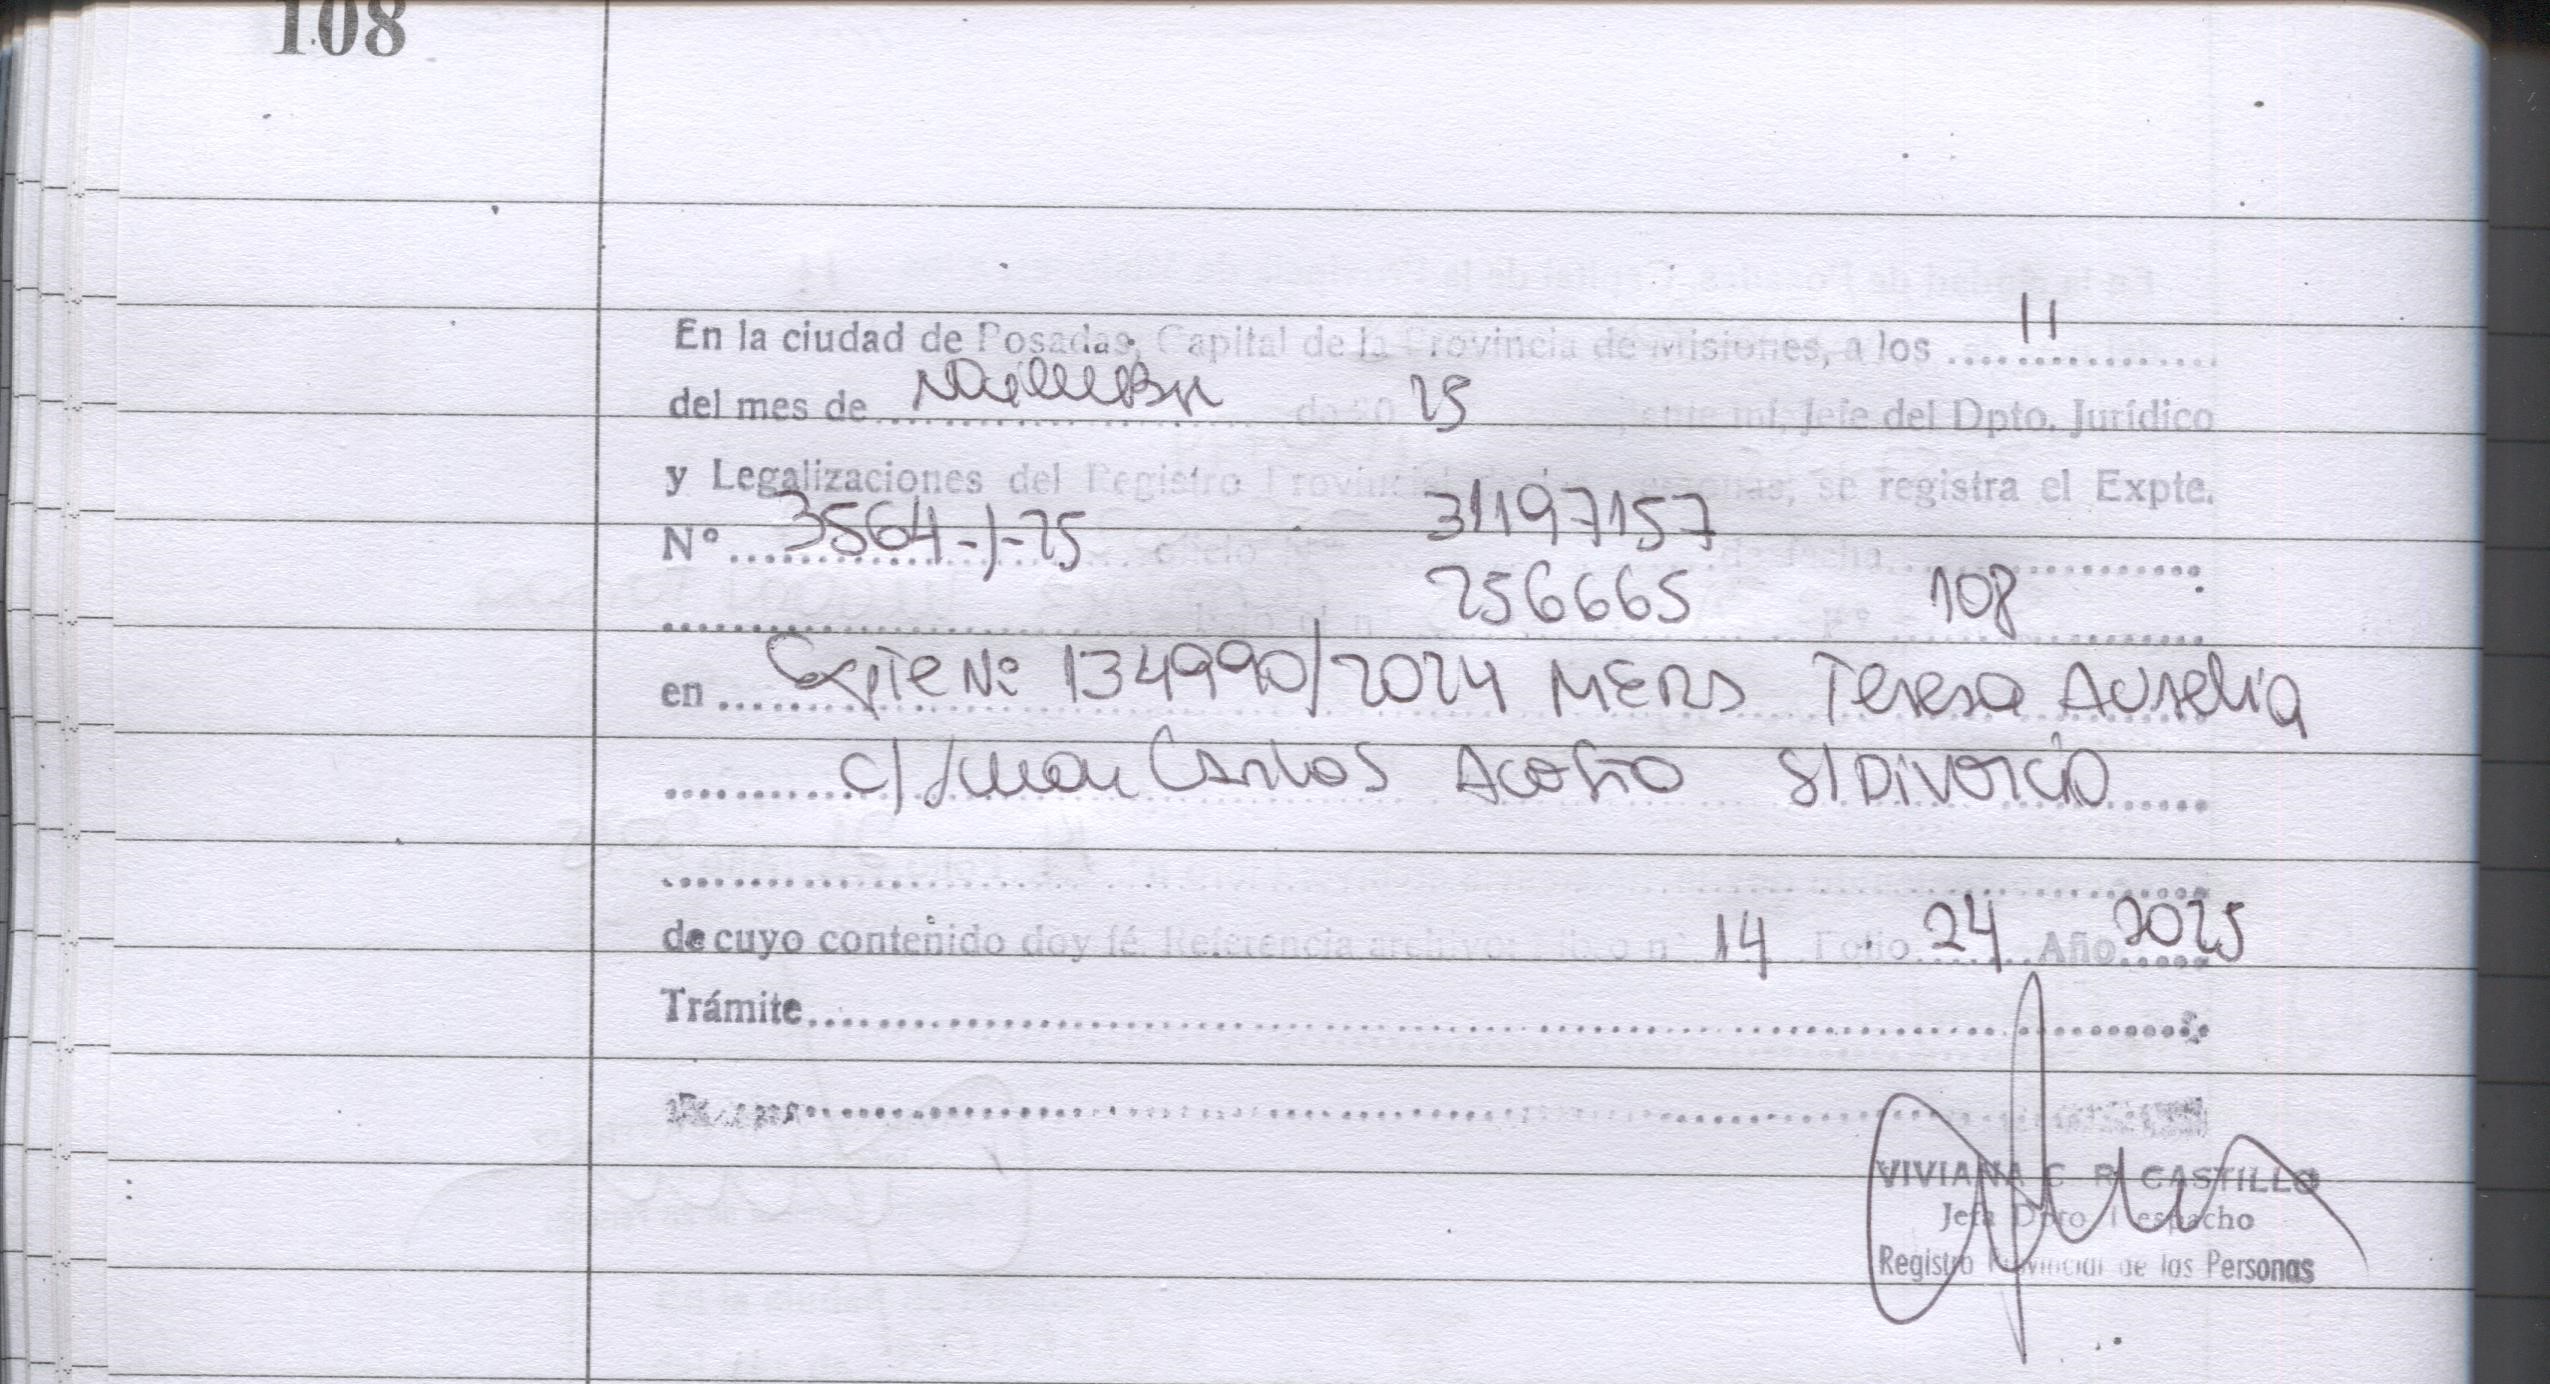 108
En la ciudad de Posadas, Capital de la Provincia de Misiones, a los 11
del mes de Noviembre de 20 25 ante mí, Jefe del Dpto. Jurídico
y Legalizaciones del Registro Provincial Personas, se registra el Expte.
Nº 3564-J-25 oficio 31197157 de fecha
256665 108
en Expte Nº 134990/2024 MERS Teresa Aurelia
c/ Juan Carlos Acosta S/DIVORCIO
de cuyo contenido doy fé. Referencia archivo: Libro nº 14 Folio 24 Año 2025
Trámite
VIVIANA C R CASTILLO
Jefa Dpto Despacho
Registro Provincial de las Personas